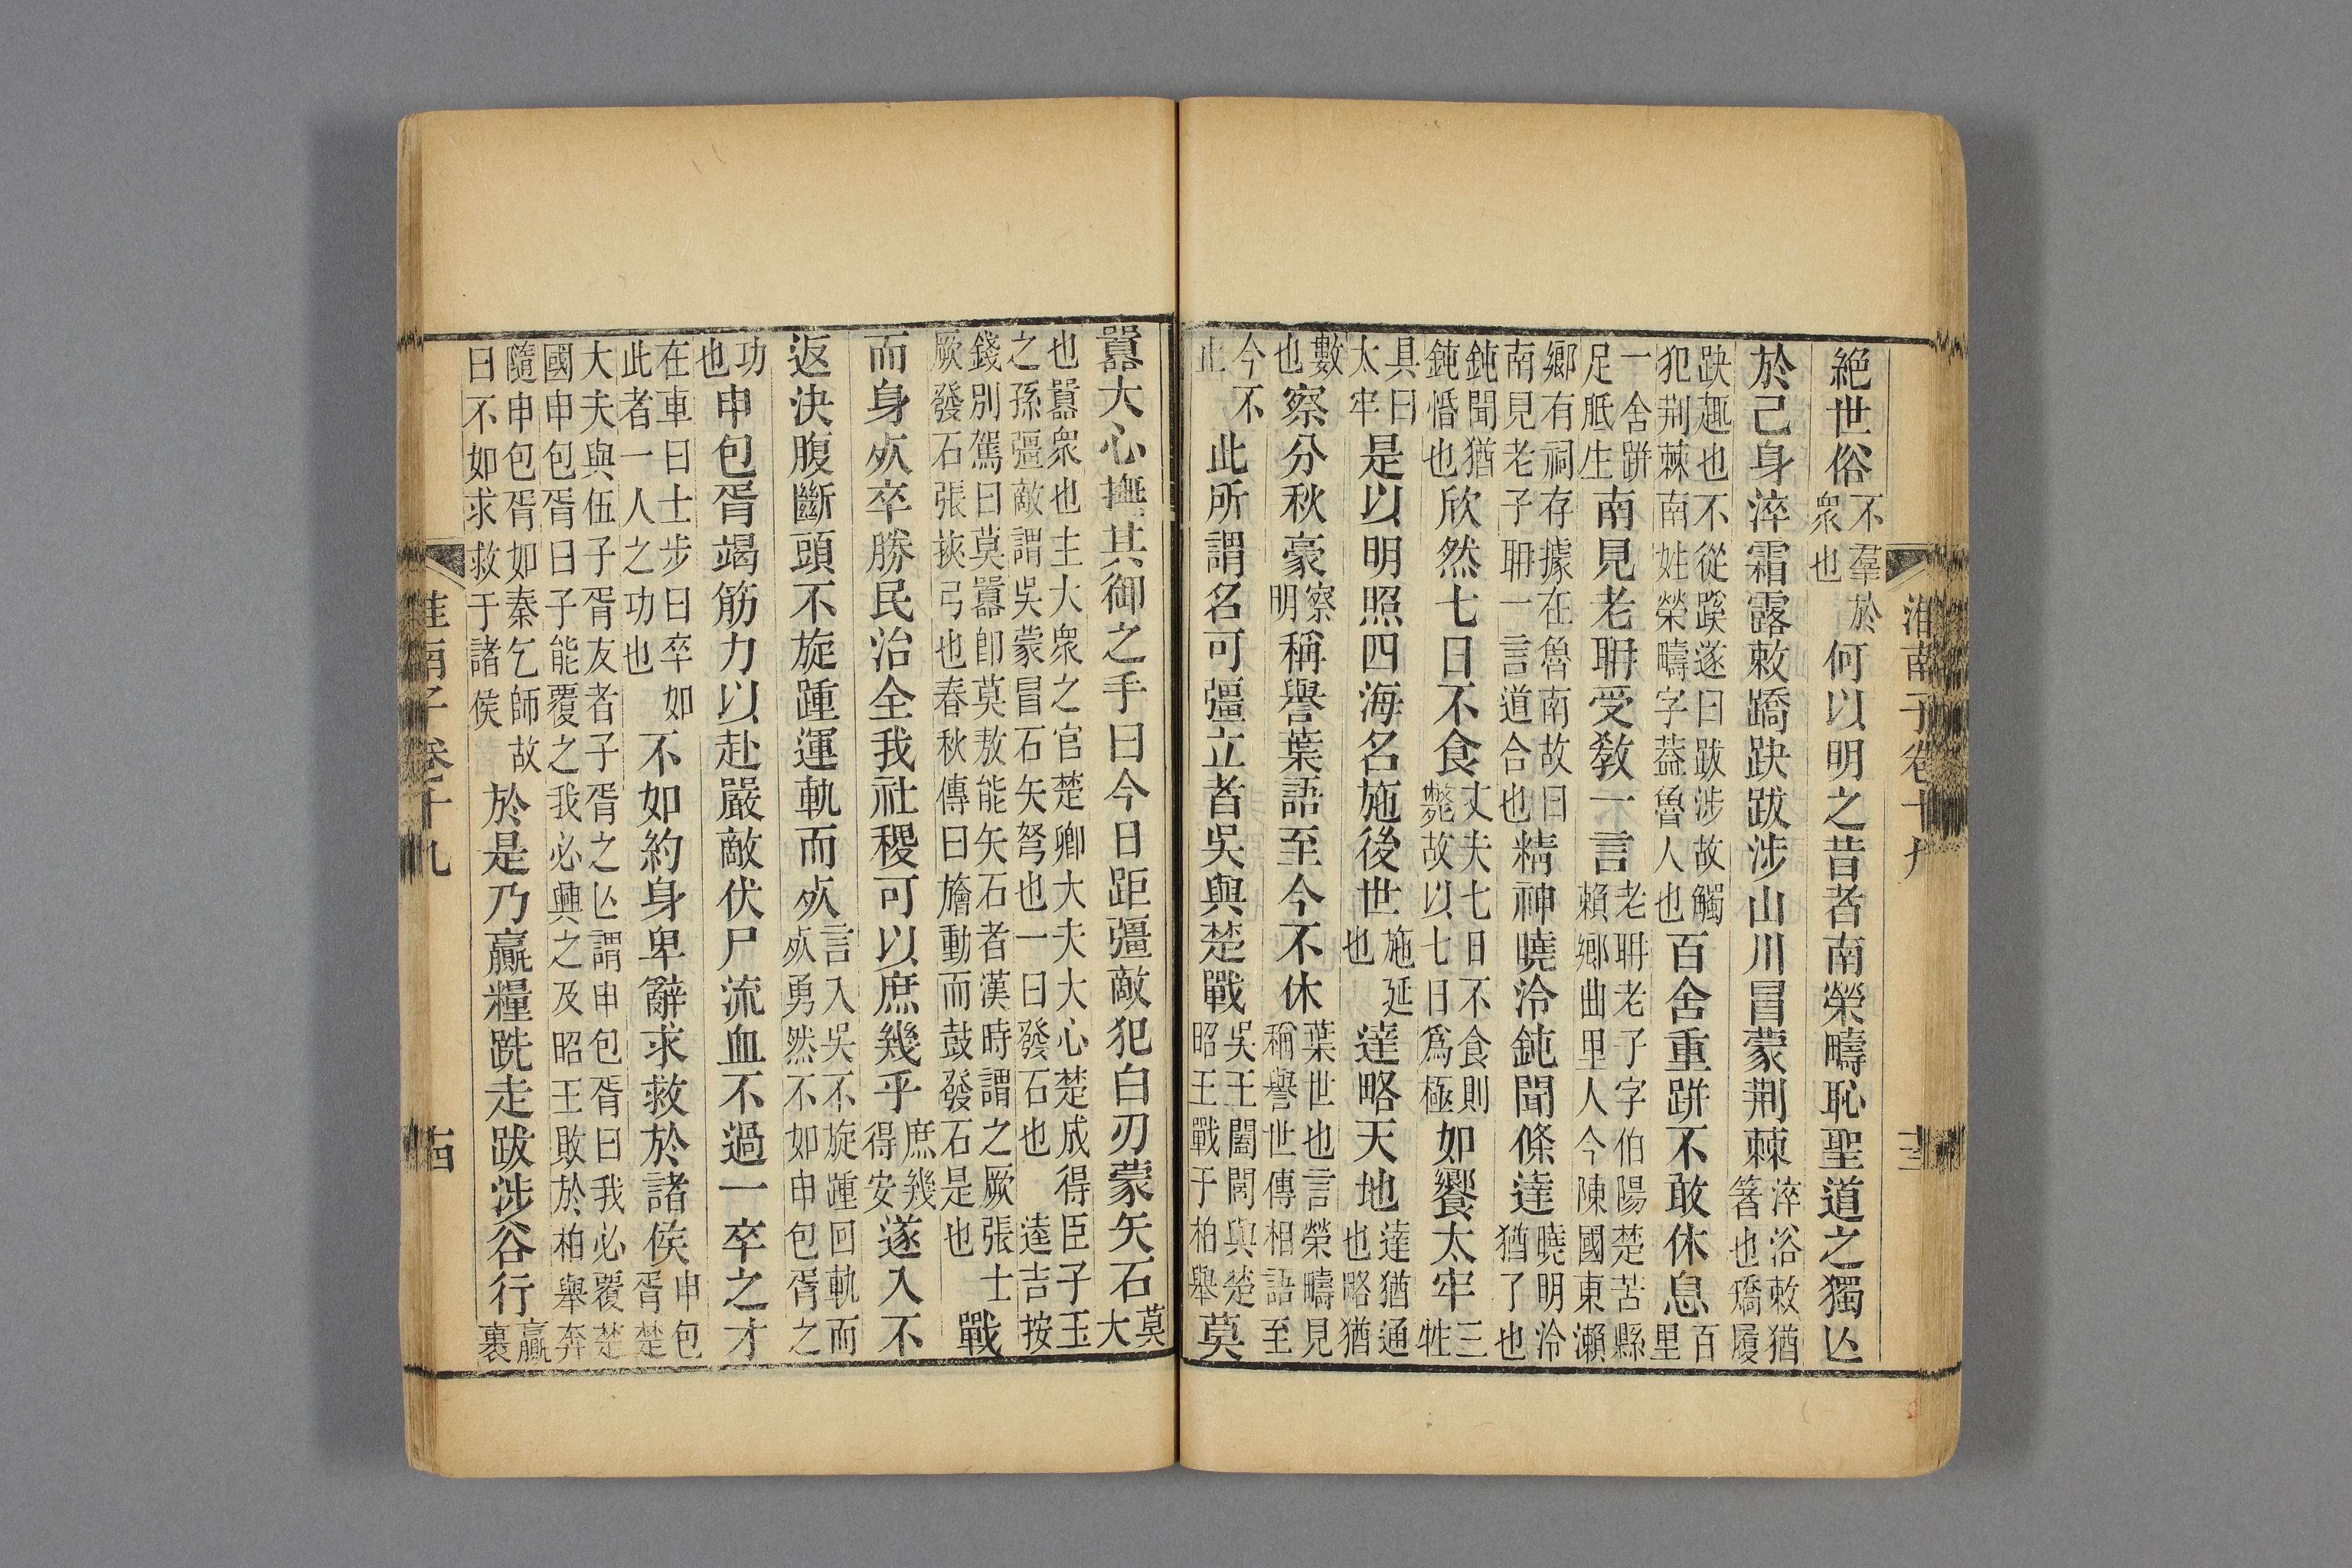 淮南子卷十九
十三
絶世俗不羣於衆也何以明之昔者南榮疇恥聖道之獨亾
於己身淬霜露敕蹻趹跋涉山川冒蒙荆棘淬浴敕猶箸也蹻履
趹趣也不從蹊遂曰跋涉故觸犯荆棘南姓榮疇字葢魯人也百舍重跰不敢休息百里
一舍跰足胝生南見老耼受教一言老耼老子字伯陽楚苦縣賴鄉曲里人今陳國東瀨
鄉有祠存據在魯南故曰南見老子耼一言道合也精神曉泠鈍聞條達曉明泠猶了也
鈍聞猶鈍惛也欣然七日不食丈夫七日不食則斃故以七日爲極如饗太牢三牲
具曰太牢是以明照四海名施後世施延也達略天地達猶通也略猶
數也察分秋豪察明稱譽葉語至今不休葉世也言榮疇見稱譽世傳相語至
今不止此所謂名可彊立者吳與楚戰吳王闔閭與楚昭王戰于柏舉莫
囂大心撫其御之手曰今日距彊敵犯白刃蒙矢石莫大
也囂衆也主大衆之官楚卿大夫大心楚成得臣子玉之孫彊敵謂吳蒙冒石矢弩也一曰發石也逵吉按
錢別駕曰莫囂卽莫敖能矢石者漢時謂之厥張士厥發石張挾弓也春秋傳曰旝動而鼓發石是也戰
而身死卒勝民治全我社稷可以庶幾乎庶幾得安遂入不
返決腹斷頭不旋踵運軌而死言入吳不旋踵回軌而死勇然不如申包胥之
功也申包胥竭筋力以赴嚴敵伏尸流血不過一卒之才
在車曰士步曰卒如此者一人之功也不如約身卑辭求救於諸侯申包胥楚
大夫與伍子胥友者子胥之亾謂申包胥曰我必覆楚國申包胥曰子能覆之我必興之及昭王敗於柏舉奔
隨申包胥如秦乞師故曰不如求救于諸侯於是乃贏糧跣走跋涉谷行贏裹
淮南子卷十九
十四